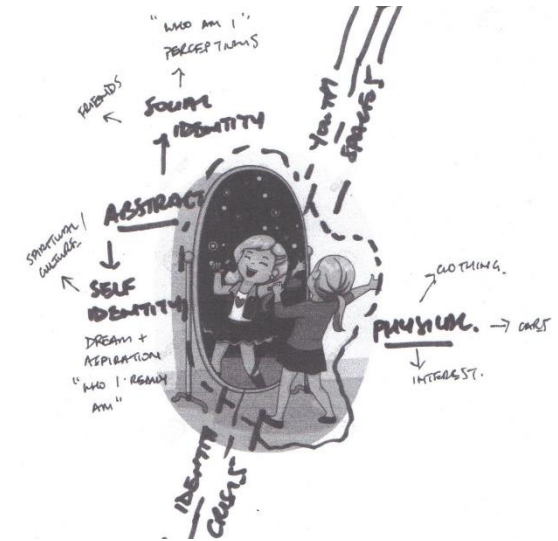 "WHO AM I"
PERCEPTIONS
FRIENDS
SOCIAL
IDENTITY
YOUTH
SPACES
ABSTRACT
SPIRITUAL /
CULTURE
SELF
IDENTITY
DREAM +
ASPIRATION
"WHO I REALLY
AM"
CLOTHING.
PHYSICAL.
CARS
INTEREST.
IDENTITY
CRISIS